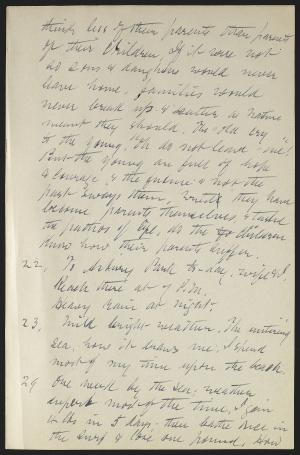 think less of their parents than parents
of their children. If it were not
so sons & daughters would never
leave home. Families would
never break up & scatter as nature
meant they should. The old cry
to the young, "Oh do not leave me."
But the young are full of hope
& courage & the future & not the
past sways them, until they have
become parents themselves, & tasted
the pathos of life, do the children
know how their parents suffer.
22, To Asbury Park to-day, wife & I.
Reach there at 7 P.M.
Heavy rain at night.
23, Mild bright weather. The entering
sea, how it draws me. I spend
most of my time upon the beach.
29 One week by the sea; weather
superb most of the time, I gain
4 lbs in 5 days; then bathe twice in
the surf & lose one pound, now